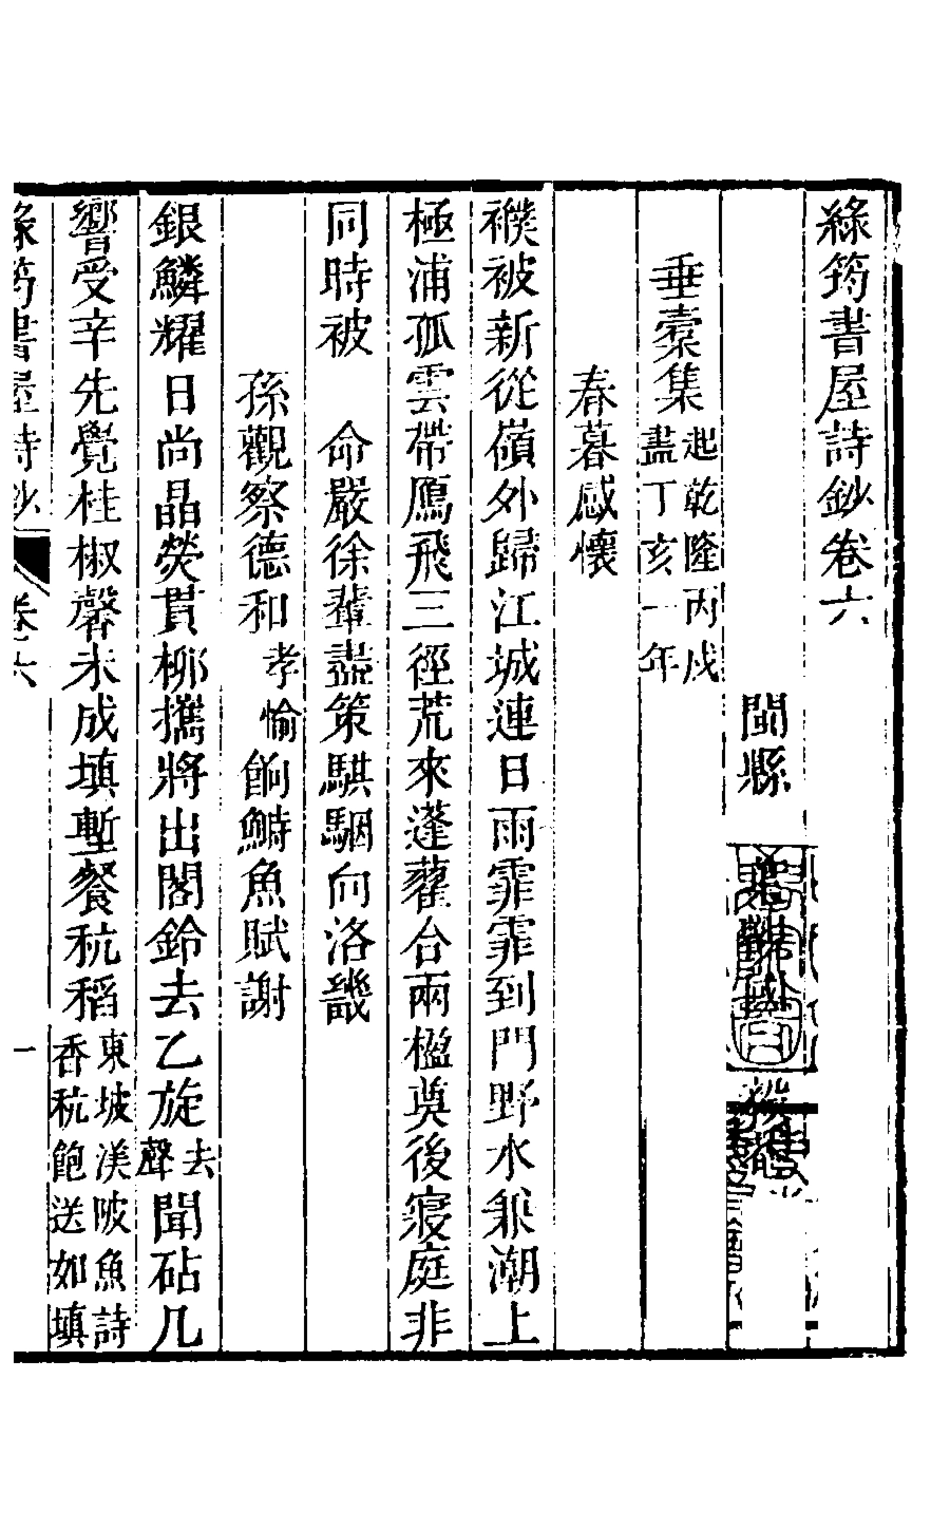 綠筠書屋詩鈔卷六
閩縣
垂橐集起乾隆丙戌盡丁亥一年
春暮感懷
襆被新從嶺外歸江城連日雨霏霏到門野水兼潮上
極浦孤雲帶鴈飛三徑荒來蓬藋合兩楹奠後寢庭非
同時被 命嚴徐輩盡策騏駰向洛畿
孫觀察德和孝愉餉鰣魚賦謝
銀鱗耀日尚晶熒貫柳攜將出閣鈴去乙旋去聲聞砧几
響受辛先覺桂椒馨未成填塹餐秔稻東坡渼陂魚詩香秔飽送如填
綠筠書屋詩鈔 卷六 一